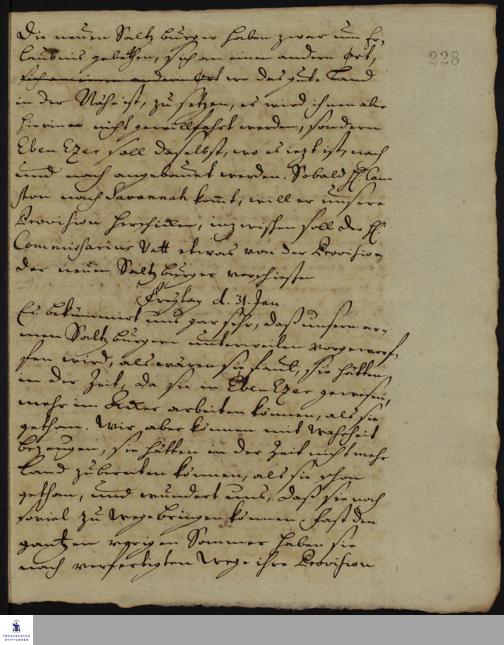 228
Die neuen Saltzburger haben zwar um Er,
laubniß gebethen, sich an einen andern Ort,
sich an einen andern Ort wo das gute Land
in der Nähe ist, zu setzen, es wird ihnen aber
hierinnen nicht gewillfahrt werden, sondern
Eben Ezer soll daselbst, wo es ietzt ist, nach
und nach angebauet werden. Sobald H. Cau
ston nach Savannah kömt, will er unsere
Provision herschicken, inzwischen soll der H.
Commissarius Vatt etwas von der Provision
der neuen Saltzburger vorschießen
Freytag d. 31. Jan.
Es bekümmert uns gar sehr, daß unsern ar,
men Saltzburgern unterweilen vorgeworf,
fen wird, als wären sie faul, sie hätten
in der Zeit, da sie in Eben Ezer gewesen,
mehr im Acker arbeiten können, als sie
gethan. Wir aber können mit Wahrheit
bezeugen, sie hätten in der Zeit nicht mehr
Land zubereiten können, als sie schon
gethan, und wundert uns, daß sie noch
soviel zu Wege bringen können. Fast den
gantzen vorigen Sommer haben sie
nach verfertigten Wege ihre Provision
FRANCKESCHE
STIFTUNGEN